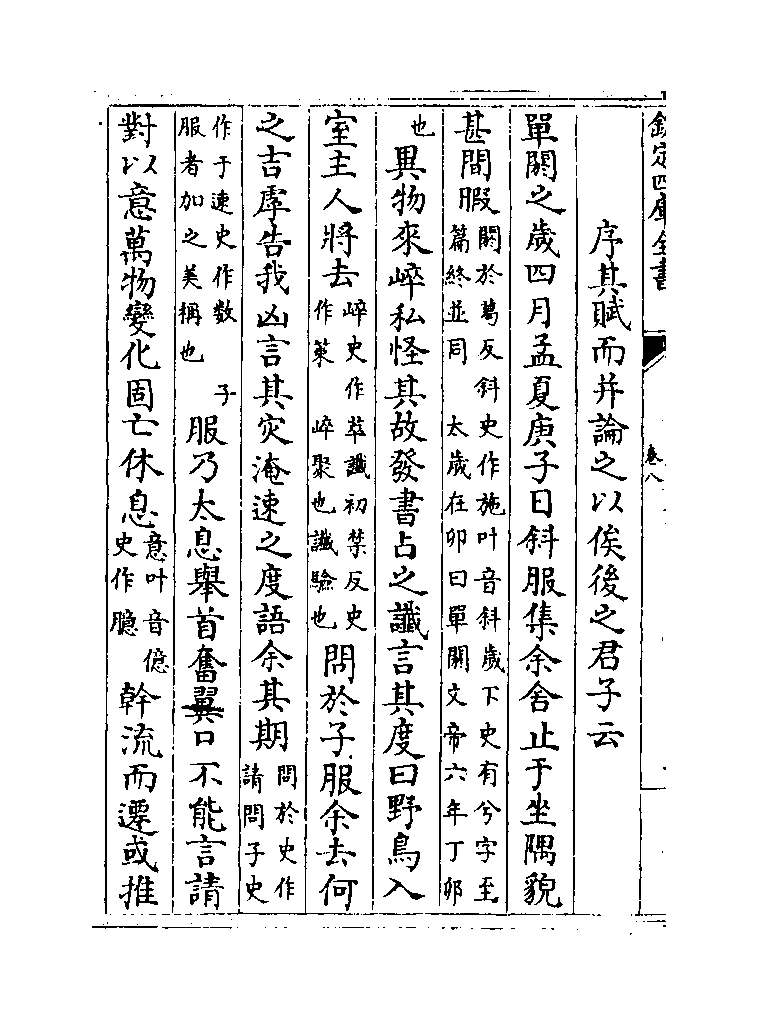 欽定四庫全書 卷八
序其賦而并論之以俟後之君子云
單閼之歲四月孟夏庚子日斜服集余舍止于坐隅貌
甚間暇閼於葛反斜史作施叶音斜歲下史有兮字至篇終並同 太歲在卯曰單閼文帝六年丁卯
也異物來崪私怪其故發書占之讖言其度曰野鳥入
室主人將去崪史作萃讖初禁反史作策 崪聚也讖驗也問於子服余去何
之吉虖告我凶言其灾淹速之度語余其期問於史作請問子史
作于速史作數 子服者加之美稱也服乃太息舉首奮翼口不能言請
對以意萬物變化固亡休息意叶音億史作臆幹流而遷或推